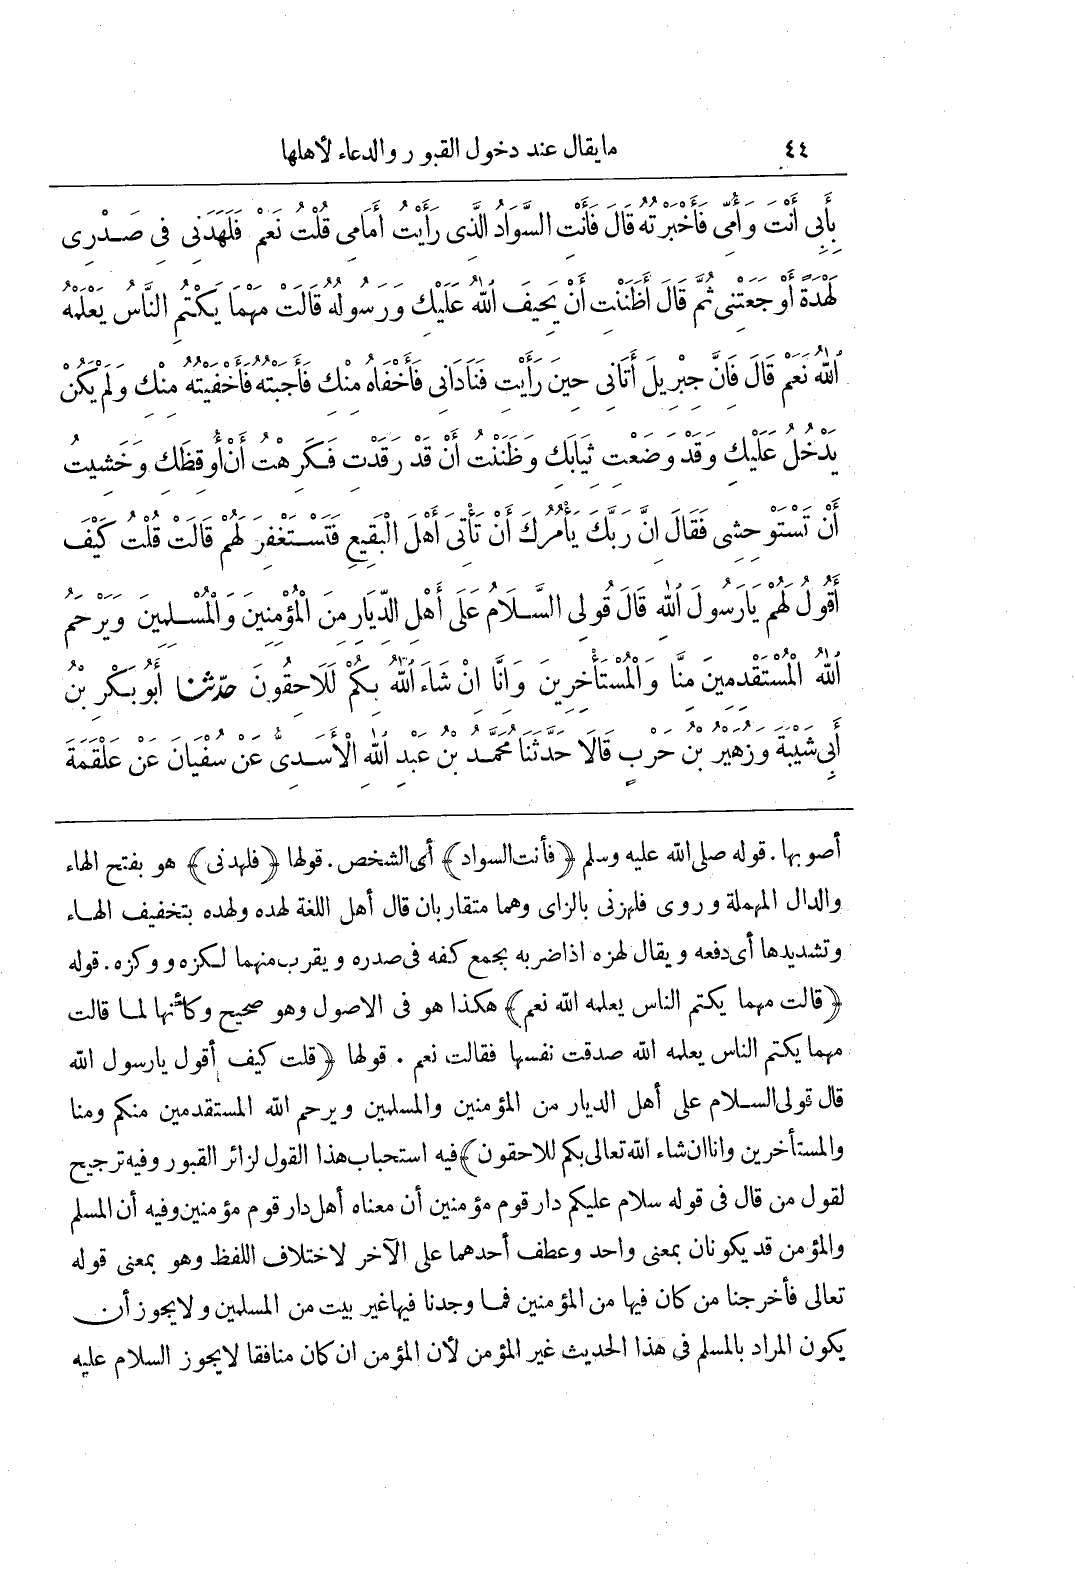 ٤٤ ما يقال عند دخول القبور والدعاء لأهلها
بِأَبِي أَنْتَ وَأُمِّي فَأَخْبَرْتُهُ قَالَ فَأَنْتِ السَّوَادُ الَّذِي رَأَيْتُ أَمَامِي قُلْتُ نَعَمْ فَلَهَدَنِي فِي صَدْرِي
لَهْدَةً أَوْجَعَتْنِي ثُمَّ قَالَ أَظَنَنْتِ أَنْ يَحِيفَ اللّٰهُ عَلَيْكِ وَرَسُولُهُ قَالَتْ مَهْمَا يَكْتُمِ النَّاسُ يَعْلَمْهُ
اللّٰهُ نَعَمْ قَالَ فَانَّ جِبْرِيلَ أَتَانِي حِينَ رَأَيْتِ فَنَادَانِي فَأَخْفَاهُ مِنْكِ فَأَجَبْتُهُ فَأَخْفَيْتُهُ مِنْكِ وَلَمْ يَكُنْ
يَدْخُلُ عَلَيْكِ وَقَدْ وَضَعْتِ ثِيَابَكِ وَظَنَنْتُ أَنْ قَدْ رَقَدْتِ فَكَرِهْتُ أَنْ أُوقِظَكِ وَخَشِيتُ
أَنْ تَسْتَوْحِشِي فَقَالَ انَّ رَبَّكَ يَأْمُرُكَ أَنْ تَأْتِيَ أَهْلَ الْبَقِيعِ فَتَسْتَغْفِرَ لَهُمْ قَالَتْ قُلْتُ كَيْفَ
أَقُولُ لَهُمْ يَارَسُولَ اللّٰهِ قَالَ قُولِي السَّلَامُ عَلَى أَهْلِ الدِّيَارِ مِنَ الْمُؤْمِنِينَ وَالْمُسْلِمِينَ وَيَرْحَمُ
اللّٰهُ الْمُسْتَقْدِمِينَ مِنَّا وَالْمُسْتَأْخِرِينَ وَانَّا انْ شَاءَ اللّٰهُ بِكُمْ لَلَاحِقُونَ حدّثنا أَبُو بَكْرِ بْنُ
أَبِي شَيْبَةَ وَزُهَيْرُ بْنُ حَرْبٍ قَالَا حَدَّثَنَا مُحَمَّدُ بْنُ عَبْدِ اللّٰهِ الْأَسَدِيُّ عَنْ سُفْيَانَ عَنْ عَلْقَمَةَ
أصوبها . قوله صلى الله عليه وسلم ﴿فأنت السواد﴾ أى الشخص . قولها ﴿فلهدنى﴾ هو بفتح الهاء
والدال المهملة وروى فلهزنى بالزاى وهما متقاربان قال أهل اللغة لهده ولهده بتخفيف الهاء
وتشديدها أى دفعه ويقال لهزه اذا ضربه بجمع كفه فى صدره ويقرب منهما لكزه ووكزه . قوله
﴿قالت مهما يكتم الناس يعلمه الله نعم﴾ هكذا هو فى الاصول وهو صحيح وكأنها لما قالت
مهما يكتم الناس يعلمه الله صدقت نفسها فقالت نعم . قولها ﴿قلت كيف أقول يارسول الله
قال قولى السلام على أهل الديار من المؤمنين والمسلمين ويرحم الله المستقدمين منكم ومنا
والمستأخرين وانا ان شاء الله تعالى بكم للاحقون﴾ فيه استحباب هذا القول لزائر القبور وفيه ترجيح
لقول من قال فى قوله سلام عليكم دار قوم مؤمنين أن معناه أهل دار قوم مؤمنين وفيه أن المسلم
والمؤمن قد يكونان بمعنى واحد وعطف أحدهما على الآخر لاختلاف اللفظ وهو بمعنى قوله
تعالى فأخرجنا من كان فيها من المؤمنين فما وجدنا فيها غير بيت من المسلمين ولا يجوز أن
يكون المراد بالمسلم فى هذا الحديث غير المؤمن لأن المؤمن ان كان منافقا لايجوز السلام عليه